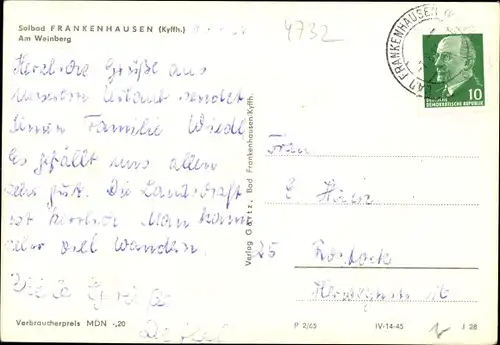 Solbad FRANKENHAUSEN (Kyffh.)
Am Weinberg
4732
BAD FRANKENHAUSEN
10
DEUTSCHE
DEMOKRATISCHE REPUBLIK
Herzliche Grüße aus
unserem Urlaub sendet
Ihnen Familie Wiede
Es gefällt uns allen
sehr gut. Die Landschaft
ist herrlich. Man kann
sehr viel wandern.
Viele Grüße
Verlag Görtz, Bad Frankenhausen/Kyffh.
Frau
E.
25 Rostock
Verbraucherpreis MDN -,20
P 2/65
IV-14-45
J 28